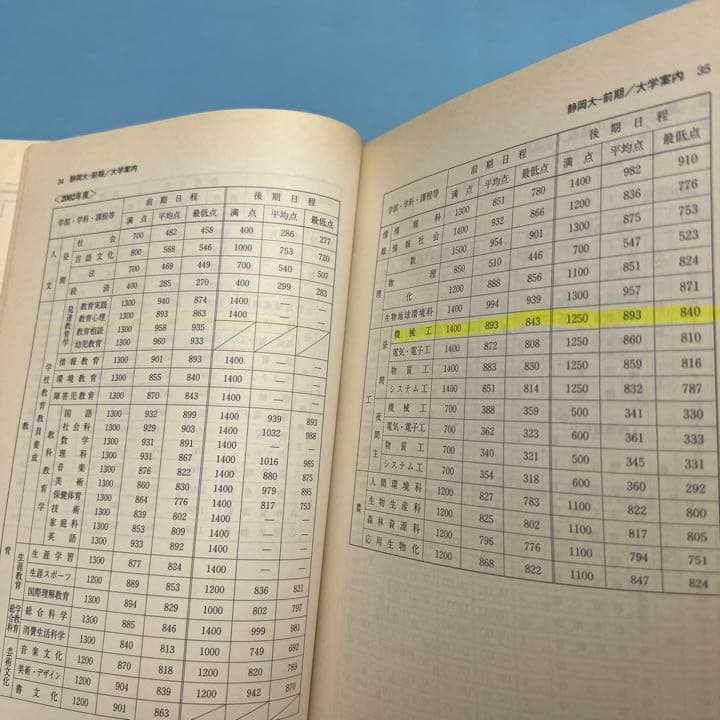 34 静岡大-前期／大学案内
〈2002年度〉
学部・学科・課程等 前期日程 後期日程
満点 平均点 最低点 満点 平均点 最低点
人文 昼間 社会 700 482 458 400 286 277
言語文化 800 568 546 1000 753 720
法 700 469 449 700 540 507
経済 400 285 270 400 299 283
教育 学校教育教員養成 発達教育学 教育実践 1300 940 874 1400 — —
教育心理 1300 893 863 1400 — —
教育相談 1300 958 935
幼児教育 1300 960 933
情報教育 1300 901 893 1400 — —
環境教育 1300 855 840 1400 — —
障害児教育 1300 870 843 1400 — —
教科教育学 国語 1300 932 899 1400 939 893
社会科 1300 929 903 1400 1032 988
数学 1300 931 891 1400 — —
理科 1300 931 867 1400 1016 985
音楽 1300 876 822 1400 880 875
美術 1300 860 830 1400 979 895
保健体育 1300 864 776 1400 817 753
技術 1300 839 802 1400 — —
家庭科 1300 853 809 1400 — —
英語 1300 933 892 1400 — —
生涯教育 生涯学習 1300 877 824 1400 — —
生涯スポーツ 1200 889 853 1200 836 821
国際理解教育 1300 894 829 1000 802 797
総合科学 1300 885 846 1400 999 981
消費生活科学 1300 840 813 1000 749 692
芸術文化 音楽文化 1200 870 818 1200 820 789
美術・デザイン 1200 904 839 1200 942 870
書文化 1200 901 863
静岡大-前期／大学案内 35
学部・学科・課程等 前期日程 後期日程
満点 平均点 最低点 満点 平均点 最低点
情報 情報科 1300 851 780 1400 982 910
情報社会 1400 932 866 1200 836 776
理 数 1500 954 901 1300 875 753
物理 850 510 446 700 547 523
化 1200 888 856 1100 851 824
生物地球環境科 1400 994 939 1300 957 871
工 昼間 機械工 1400 893 843 1250 893 840
電気・電子工 1400 872 808 1250 860 810
物質工 1400 883 830 1250 859 816
システム工 1400 851 814 1250 832 787
夜間主 機械工 700 388 359 500 341 330
電気・電子工 700 362 323 600 361 333
物質工 700 340 321 500 345 331
システム工 700 354 318 600 360 292
農 人間環境科 1200 827 783 1100 822 800
生物生産科 1200 825 802 1100 847 085
森林資源科 1200 796 776 1100 794 751
応用生物化 1200 868 822 1100 847 824